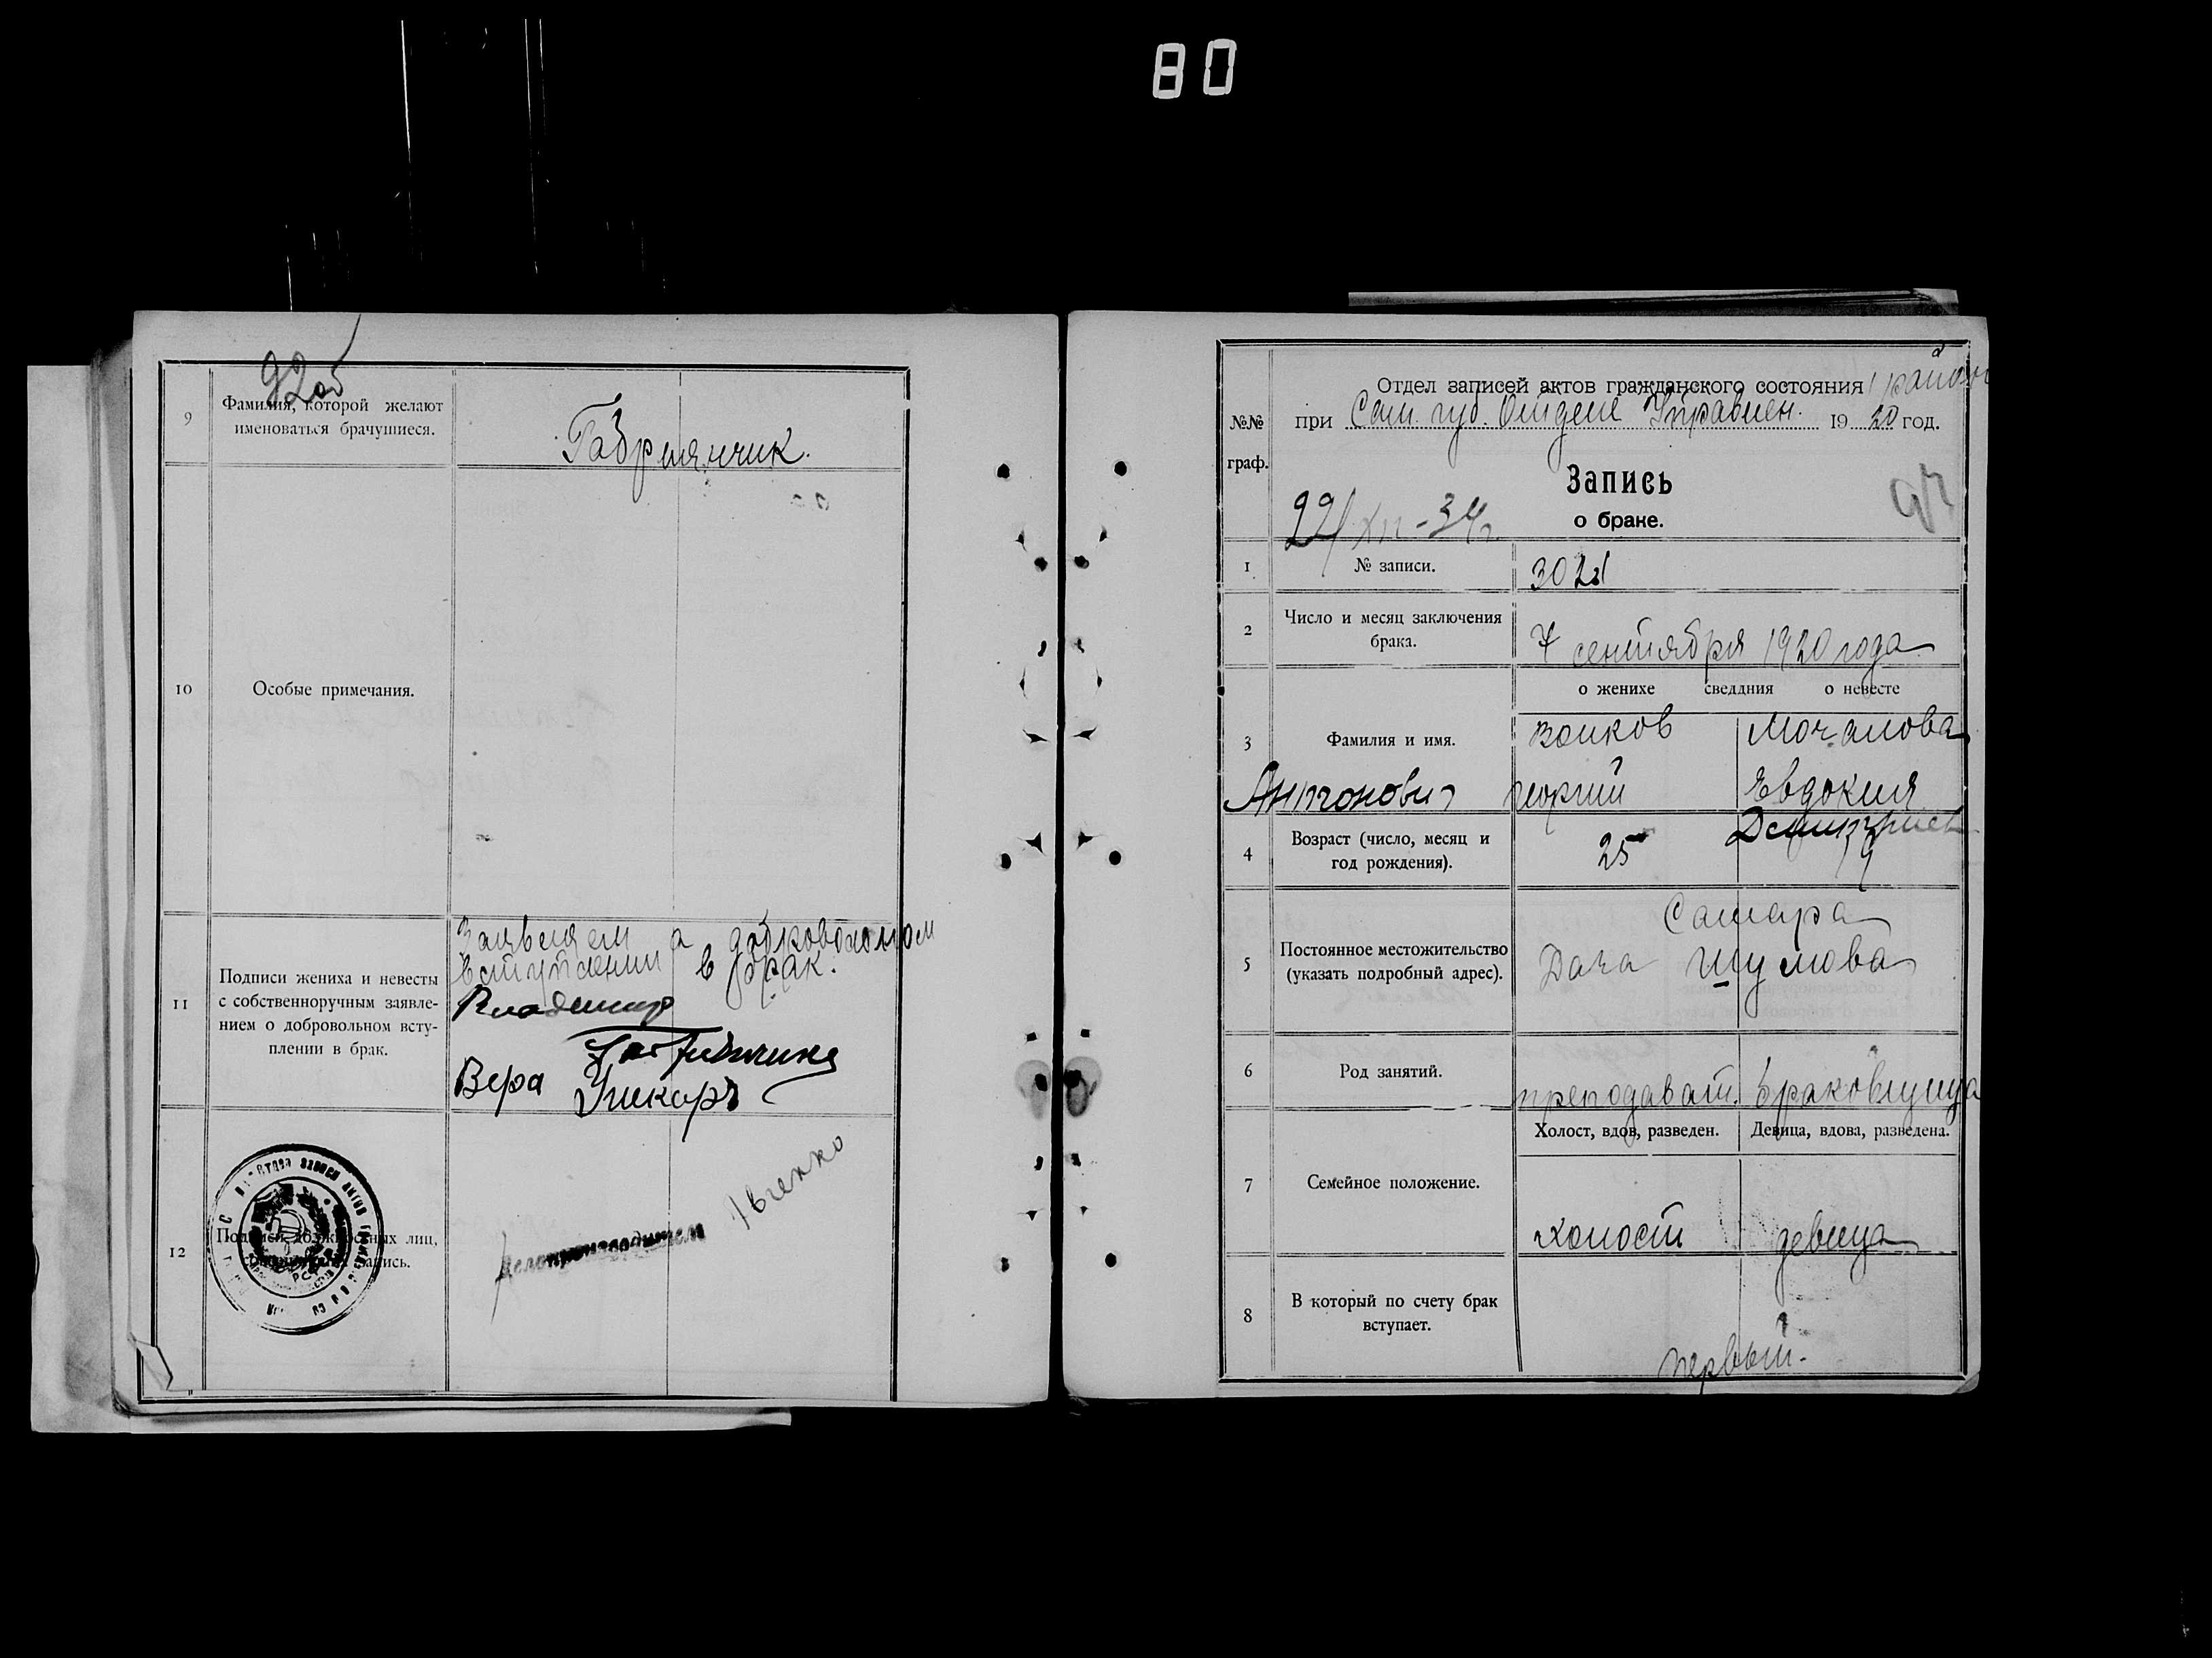 80
92об
9
Фамилия, которой желают
именоваться брачущиеся.
10
Особые примечания.
11
Подписи жениха и невесты
с собственноручным заявле-
нием о добровольном всту-
плении в брак.
Заявляем о добровольном
вступлении в брак.
Владимир
Вера
12
Подписи должностных лиц,
запись.
Делопроизводитель
Отдел записей актов гражданского состояния 1 район
при Сам. губ. Отделе Управлен. 1920 год.
№№
граф.
Запись
о браке.
93
22/XII-34г.
1
№ записи.
2
Число и месяц заключения
брака.
7 сентября 1920 года
о женихе сведдния о невесте
3
Фамилия и имя.
Волков Мочалова
Антонович Георгий Евдокия
Дмитриев
4
Возраст (число, месяц и
год рождения).
25 19
5
Постоянное местожительство
(указать подробный адрес).
Самара
Дача Шумова
6
Род занятий.
преподават. браковщица
7
Семейное положение.
Холост, вдов, разведен. Девица, вдова, разведена.
холост девица
8
В который по счету брак
вступает.
первый.